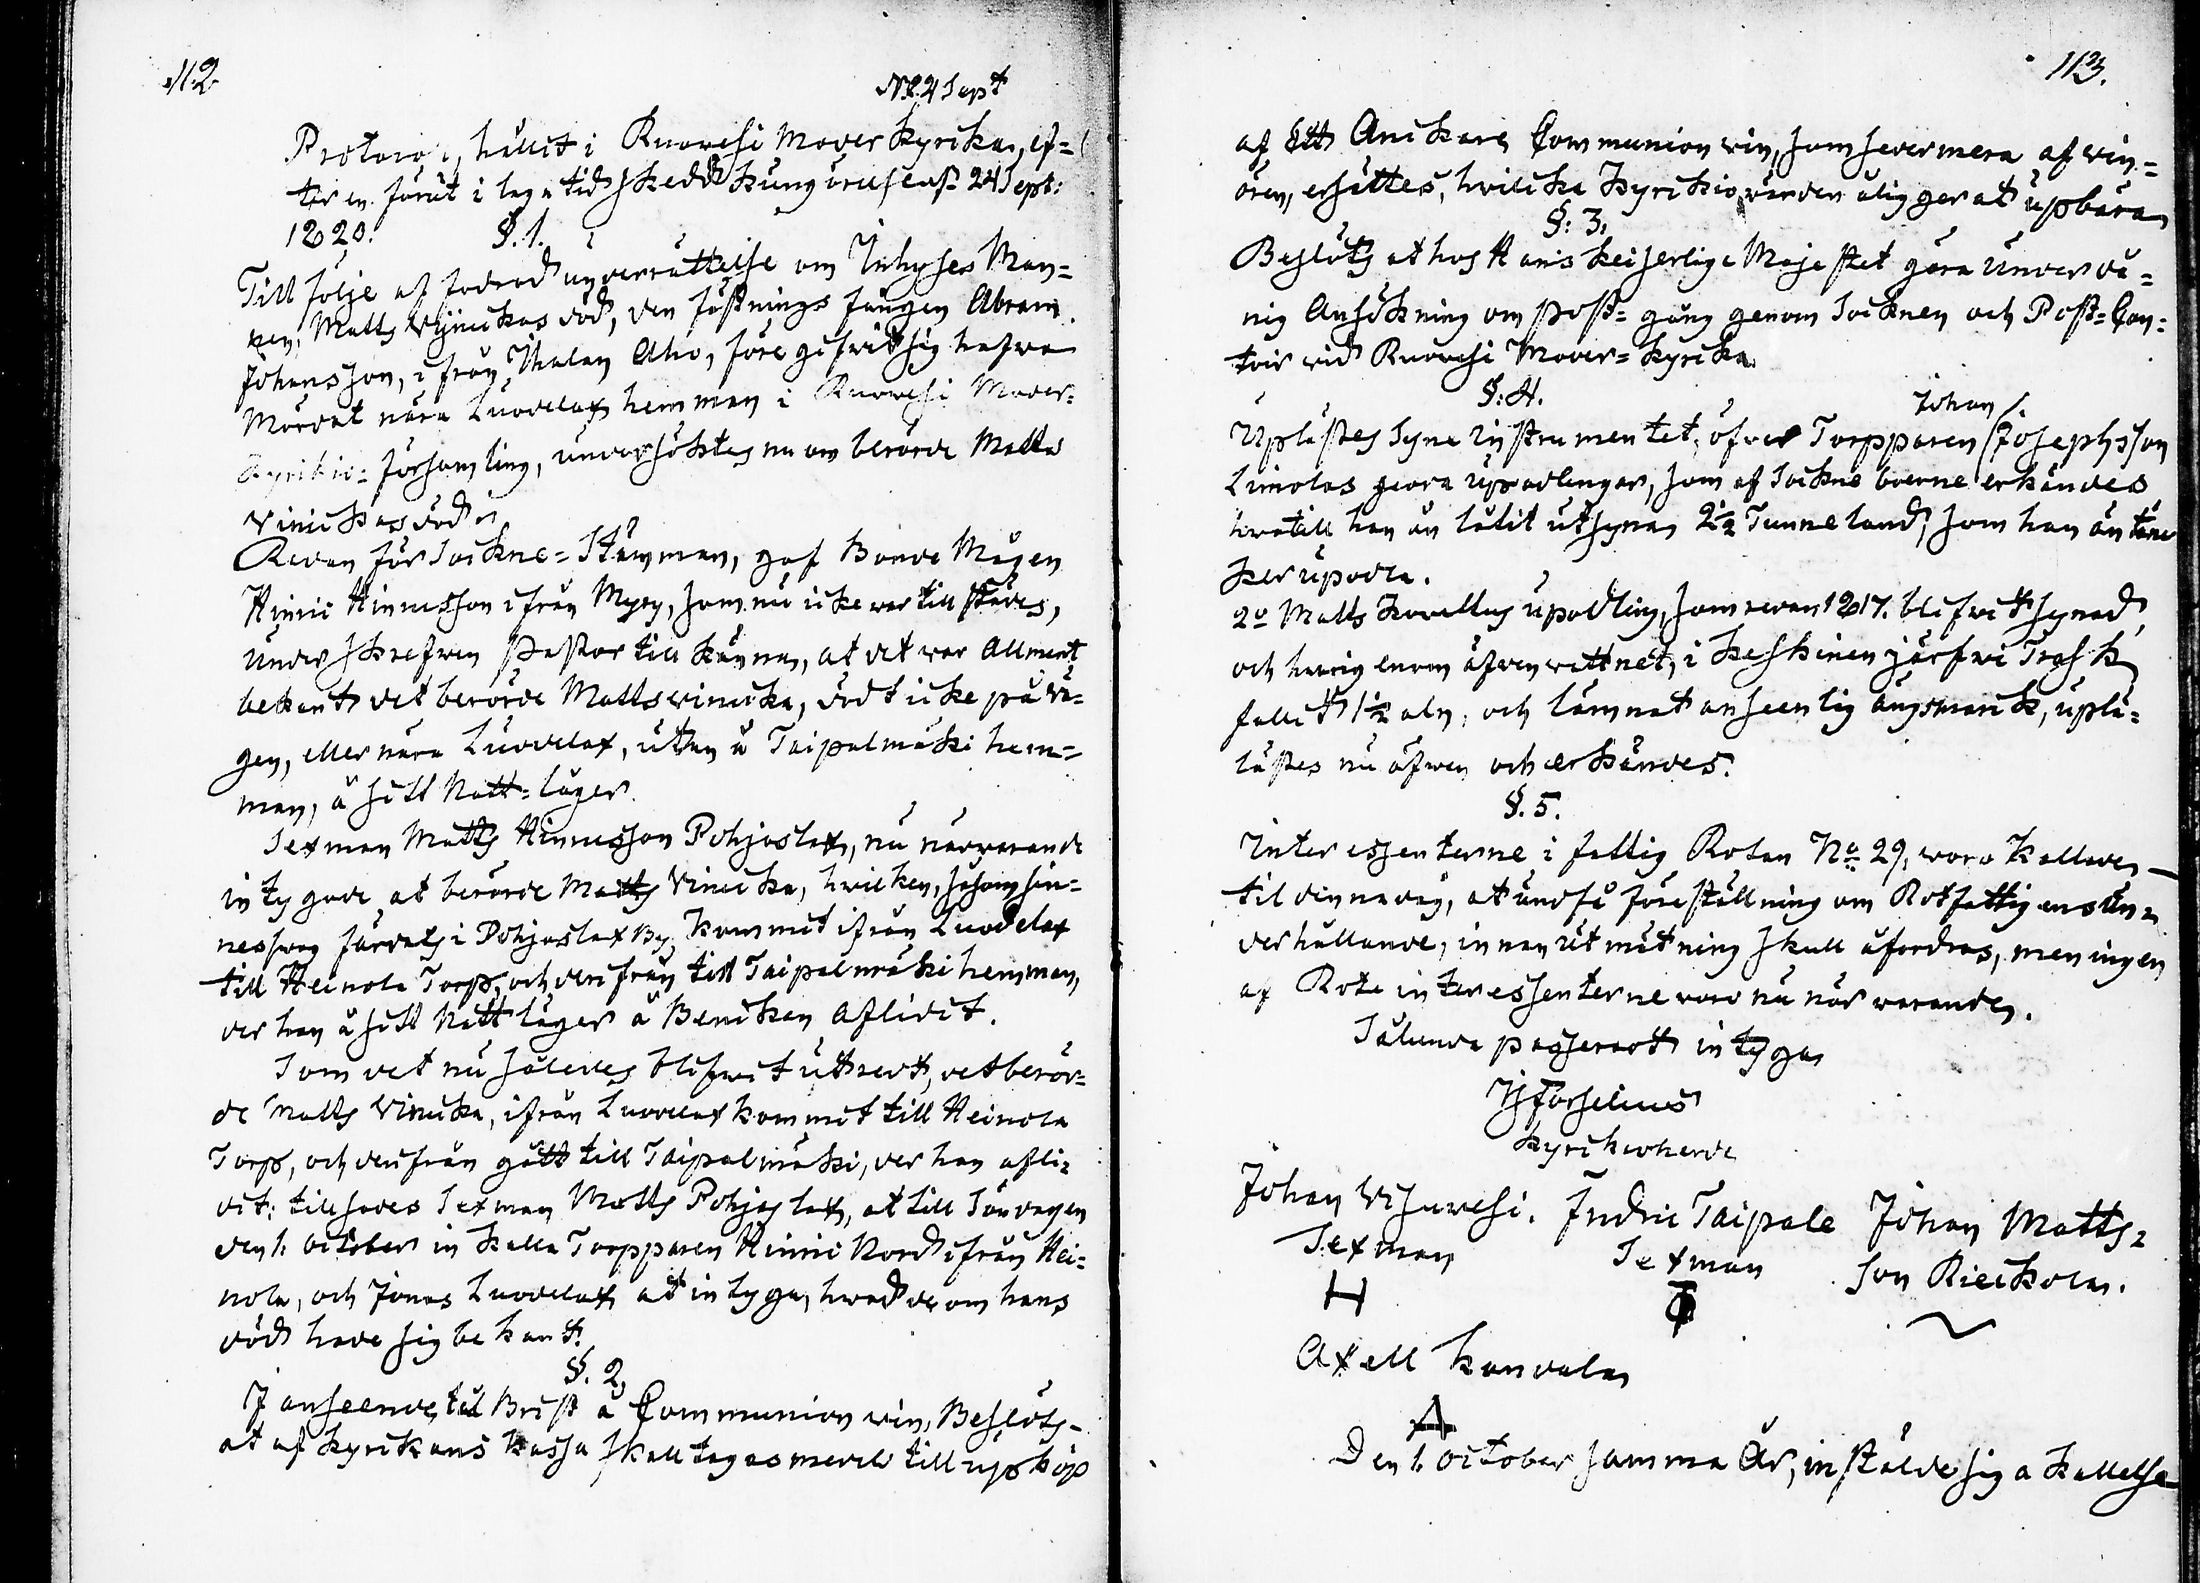 112
d. 24 Sept
Protocoll, hållit i Ruowesi Moder Kyrkia, ef=
ter en förut i laga tid skedd kungörelse d. 24 Sept:
1820.
§. 1.
Till följe af fodrad underrättelse om Inhyses Man=
nen, Matts Vinickas död, den fästnings fången Abram
Johansson, ifrån Ihalan Aho, före gifwit sig hafwa
Mördat nära Luodelax hemman i Ruowesi Moder=
Kyrkio= församling, undersöktes nu om berörde Matts
Vinickas död.
Redan för Sockne= Stämman, gaf Bonde Mågen
Hinric Hinricsson ifrån Myry, som nu icke war tillstädes,
Underskrefwen Pastor till känna, at det war Allment
bekant det berörde Matts Vinicka, dödt icke på Vä=
gen, eller nära Luodelax, utan å Taipalmäki hem=
man, å sitt Natt= läger.
Sexman Matts Hinricsson Pohjoslax, nu närwarande
intygade at berörde Matts Vinicka, hwilken, såsom sin=
nesswag färdats i Pohjoslax By, kommit ifrån Luodelax
till Heinola Torp, och derifrån till Taipalmäki hemman,
der han å sitt Natt läger å Bencken Aflidit.
Som det nu således blifwit utredt, det berör=
de Matts Vinicka, ifrån Luodelax kommit till Heinola
Torp, och derifrån gått till Taipalmäki, der han afli=
dit; tillsades Sexman Matts Pohjoslax, at till Söndagen
den 1. October inkalla Torpparen Hinric Nord ifrån Hei=
nola, och Jonas Luodelax at intyga, hwad de om hans
död hade sig bekant.
§. 2.
I anseende til Brist å Communion win, Beslöts
at af Kyrkans kassa skall tagas medel till upköp
113.
af Ett Anckare Communion win, som sedermera af win=
ören, ersättes, hwilcka Kyrckiowärden åligger at upbära
§: 3.
Beslöts at hos Hans Keijserliga Majestet göra Underdå=
nig Ansökning om Post= gång genom Socknen och Post= Con=
toir wid Ruowesi Moder= Kyrcka.
§: 4.
Johan /.
Uplästes Syne Instrumentet, öfwer Torpparen / Josephsson
Limolas giorda Upodlingar, som af Sockneboerne erkändes
hwartill han än låtit utsyna 2 1/2 Tunneland, som han än tänc
ker upodla.
2o Matts Kowettus Upodling, som redan 1817. blifwit synad,
och hwarigenom äfwen wattnet, i Keskinen järfwi Träsk
fallit 1 1/2 aln, och lämnat ansenlig ängsmarck, uplä=
lästes nu äfwen och erkändes.
§. 5.
Interessenterne i fattig Rotan No 29, woro kallade
til denna dag, at undfå föreställning om Rotfattigens Un=
derhållande, innan utmätning skall åfordras, men ingen
af Rote interessenterne woro nu närwarande.
Sålunda passerat intygar
Forselius
Kyrckoherde
Johan Visuwesi. Fredric Taipale Johan Matts=
Sexman Sexman son Rieckola.
H
Axell Kanvala
A
Den 1. October samma År, instälde sig å kallelse